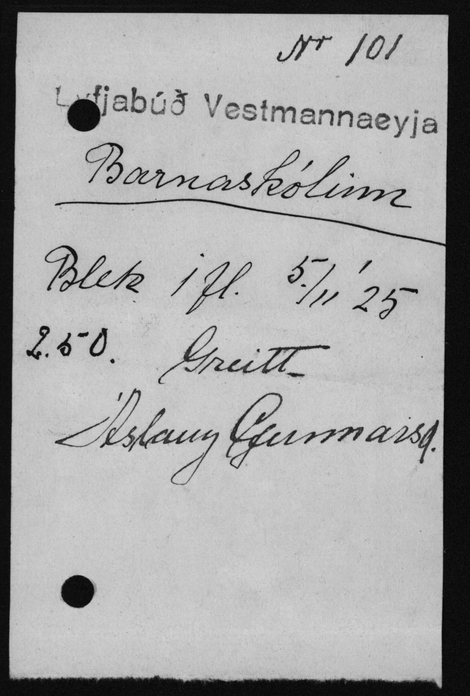 Nr 101
Lyfjabúð Vestmannaeyja
Barnaskólinn
Blek 1 fl. 5/11 '25
2.50. Greitt
Áslaug Gunnarsd.